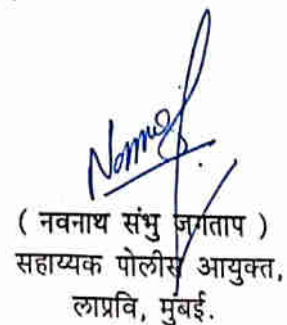 ( नवनाथ संभु जगताप )
सहाय्यक पोलीस आयुक्त,
लाप्रवि, मुंबई.